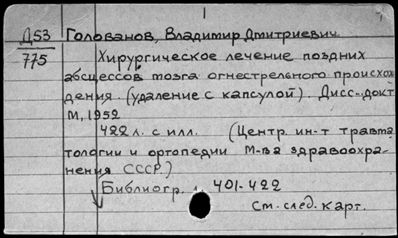 1
Д53 Голованов, Владимир Дмитриевич.
775 Хирургическое лечение поздних
абсцессов мозга огнестрельного происхож
дения (удаление с капсулой). Дисс-докт
М, 1952
422 л. с илл. (Центр. ин-т травма
тологии и ортопедии М-ва здравоохра-
нения СССР.)
Библиогр. л. 401-422
См. след. карт.